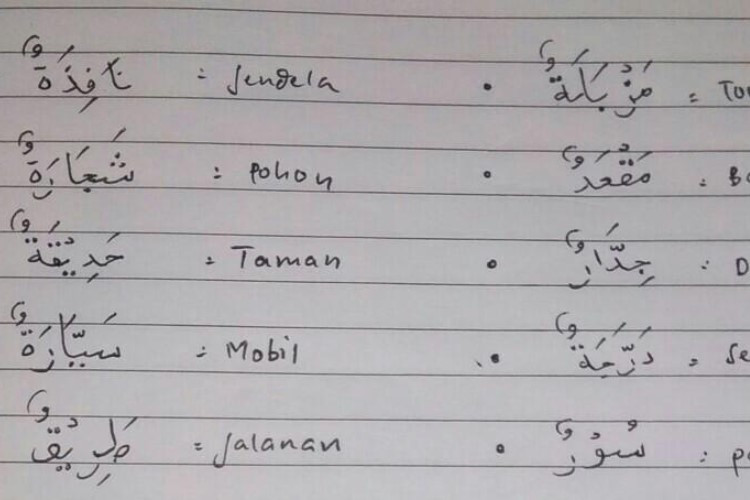 نَافِذَةٌ = Jendela • مَزْبَلَةٌ = To
شَجَارَةٌ : pohon • مَقْعَدٌ : B
حَدِيْقَةٌ : Taman • جِدَّارٌ : D
سَيَّارَةٌ : Mobil • دَرَّجَةٌ = Se
طَرِيْقٌ = Jalanan • سُوْرٌ : p